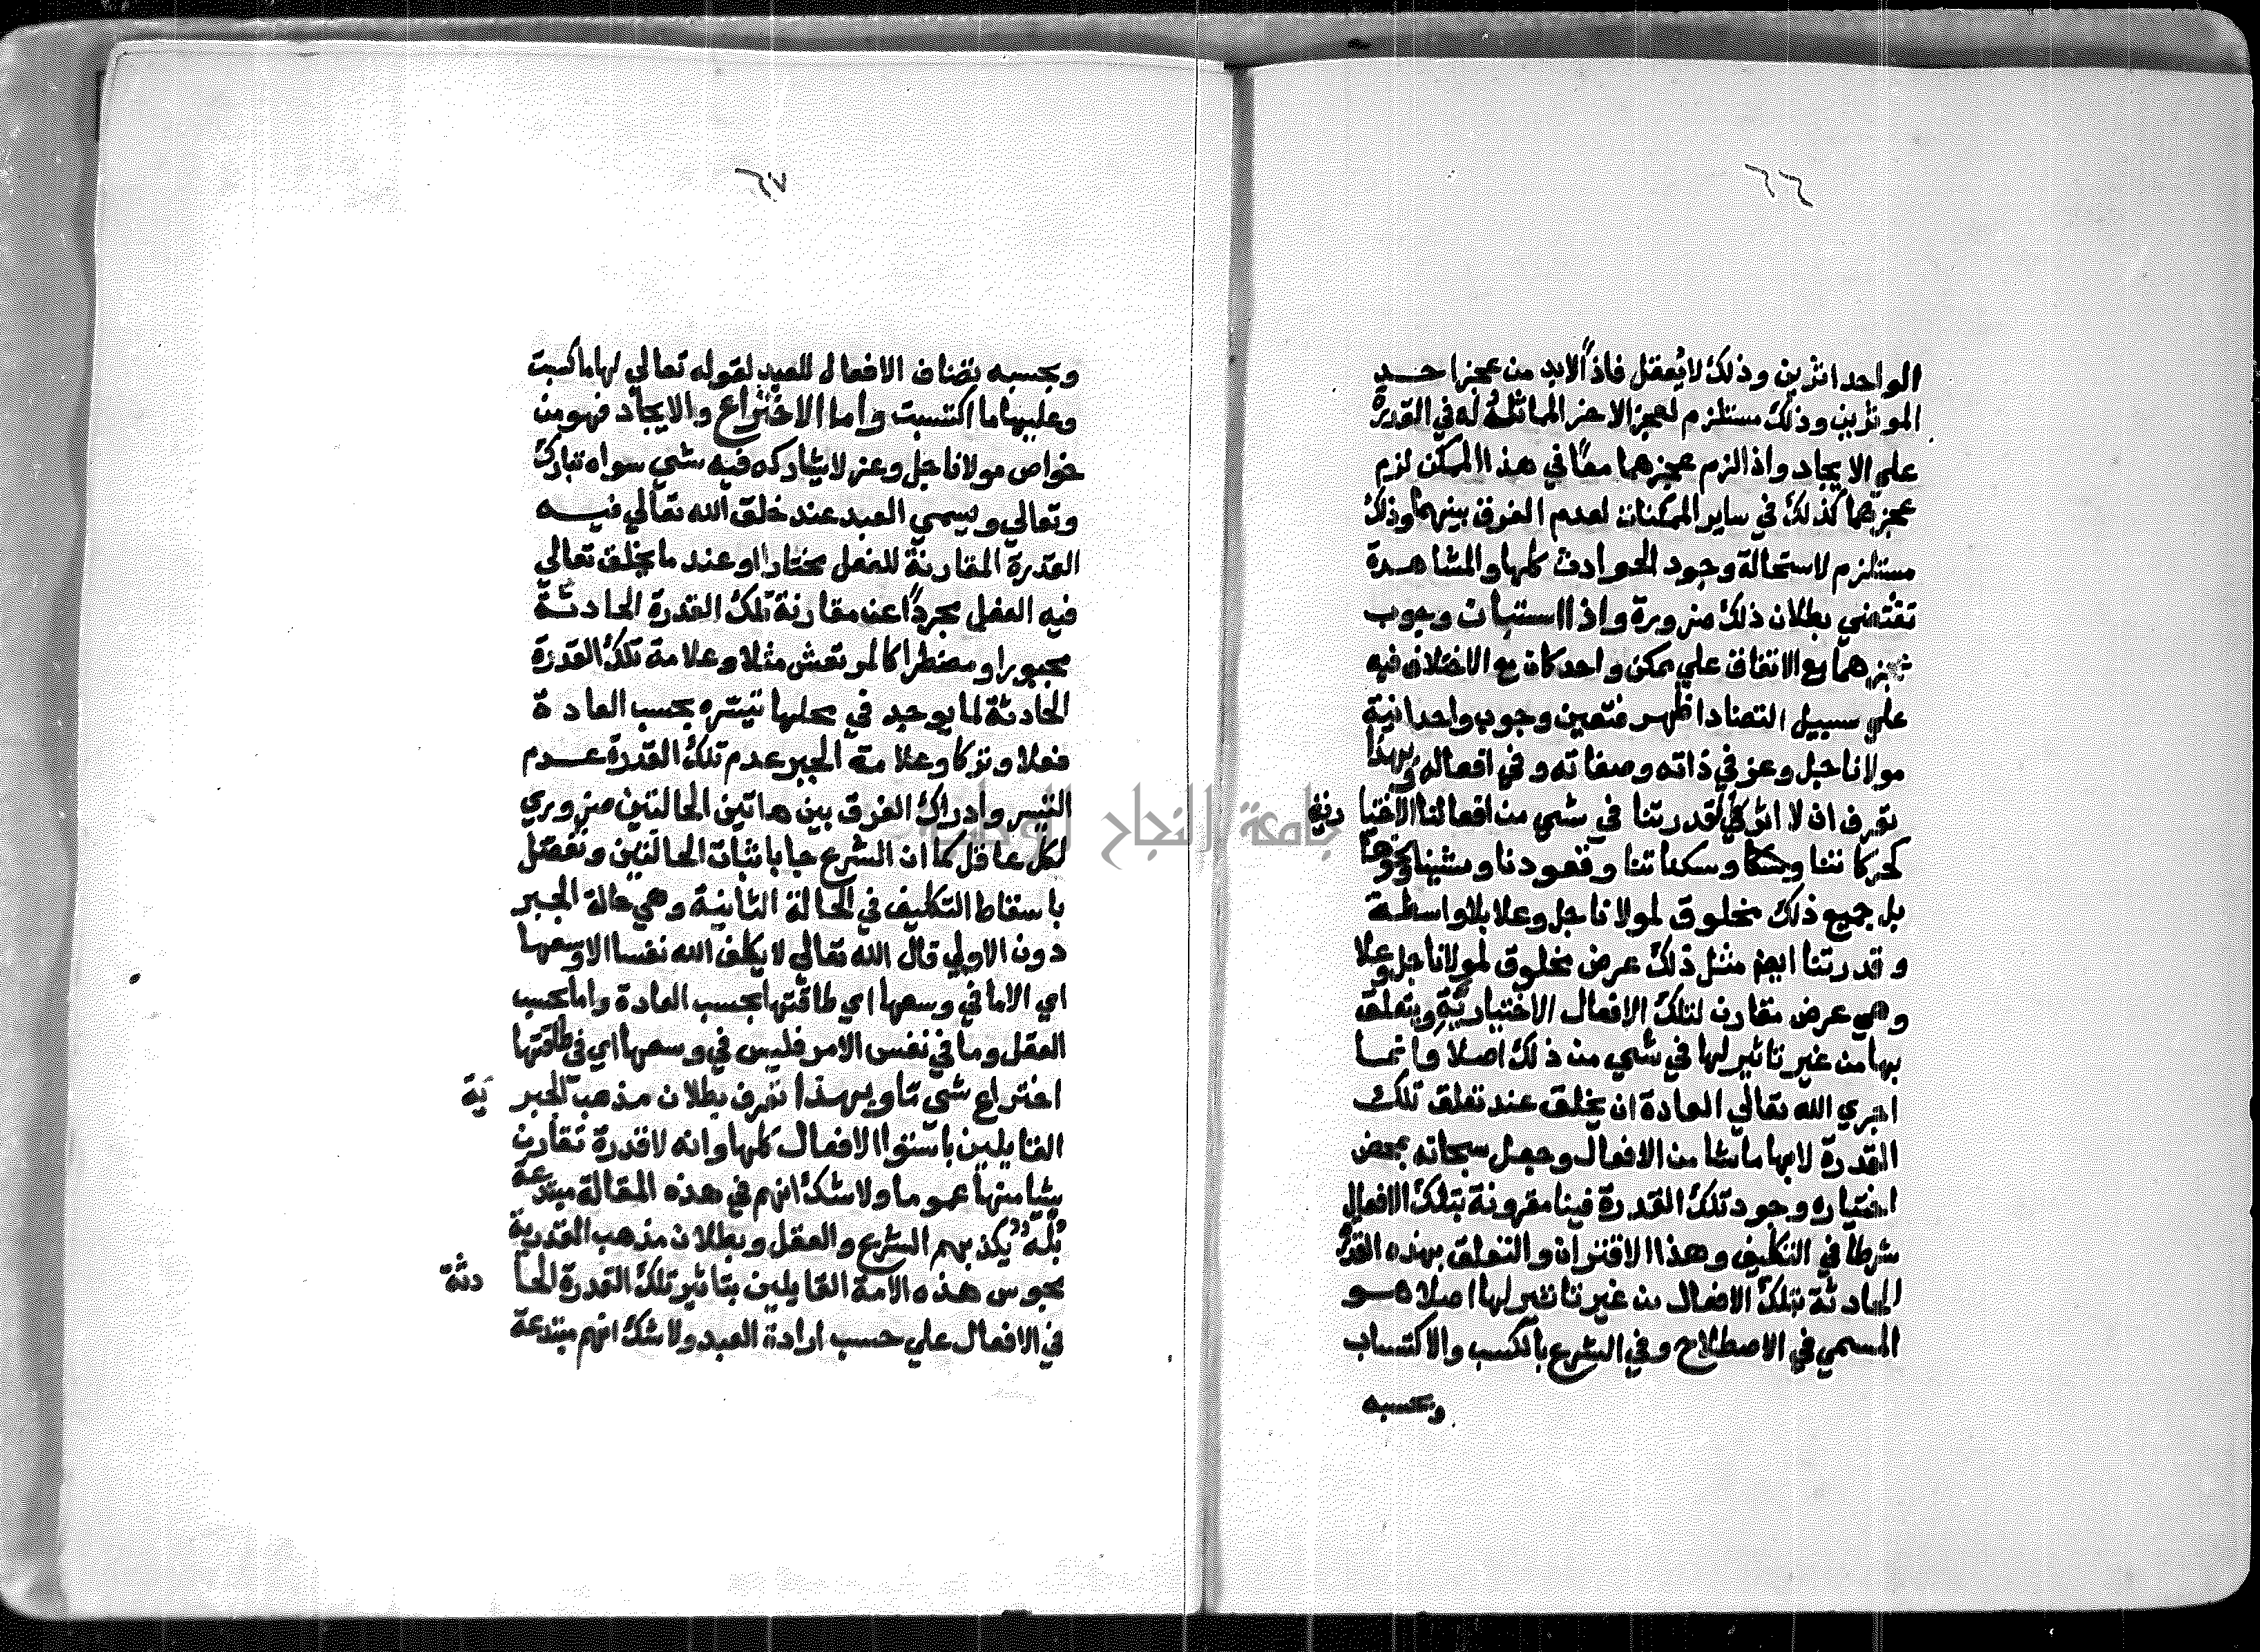 ٢٦
الواحد اثرين وذلك لا يُعقل فاذًا لابد من عجز احد
الموثرين وذلك مستلزم لعجز الاخر المماثلُ له في القدرة
علي الايجاد واذا لزم عجزهما معًا في هذا الممكن لزم
عجزهما كذلك في ساير الممكنات لعدم الفرق بينهما وذلك
مستلزم لاستحالة وجود الحوادث كلها والمشاهدة
تقتضي بطلان ذلك ضرورة واذا استبان وجوب
عجزهما مع الاتفاق علي ممكن واحد كان مع الاختلاف فيه
علي سبيل التضاد اظهر فتعين وجوب واحدانية
مولانا جل وعز في ذاته وصفاته وفي افعاله وبهذا
تعرف ان لا اثر لكل قدرتنا في شي من افعالنا الاختيا رية
كحركاتنا وسكناتنا وقعودنا ومشينا ونحوها
بل جميع ذلك مخلوق لمولانا جل وعلا بلا واسطة
وقدرتنا ايضا مثل ذلك عرض مخلوق لمولانا جل وعلا
وهي عرض مقارن لتلك الافعال الاختياريّةِ ويتعلق
بها من غير تاثير لها في شي من ذلك اصلا وانما
اجري الله تعالي العادة ان يخلق عند تعلق تلك
القدرة لابها ما شا من الافعال وجعل سبحانه بمحض
اختياره وجود تلك القدرة فينا مقرونة بتلك الافعال
شرطا في التكليف وهذا الاقتران والتعلق بهذه القدرة
الحادثة بتلك الافعال من غير تاثير لها اصلا هو
المسمي في الاصطلاح وفي الشرع بالكسب والاكتساب
وبحسبه
٢٧
وبحسبه تضاف الافعال للعبد لقوله تعالي لها ما كسبت
وعليها ما اكتسبت واما الاختراع والايجاد فهو من
خواص مولانا جل وعز لا يشاركه فيه شي سواه تبارك
وتعالي ويسمي العبد عند خلق الله تعالي فيه
القدرة المقارنة للفعل مختارا وعند ما يخلق تعالي
فيه الفعل مجردًا عن مقارنة تلك القدرة الحادثة
مجبورا ومضطرا كالمرتعش مثلا وعلامة تلك القدرة
الحادثة لما يوجد في محلها تيسره بحسب العادة
فعلا وتركا وعلامة الجبر عدم تلك القدرة عدم
التيسر وادراك الفرق بين هاتين الحالتين ضروري
لكل عاقل كما ان الشرع جا باثبات الحالتين وتفضل
باسقاط التكليف في الحالة الثانية وهي حالة الجبر
دون الاولي قال الله تعالي لا يكلف الله نفسا الا وسعها
اي الا ما في وسعها اي طاقتها بحسب العادة واما بحسب
العقل وما في نفس الامر فليس في وسعها اي في طاقتها
اختراع شي تا وبهذا تعرف بطلان مذهب الجبر ية
القايلين باستوا الافعال كلها وانه لا قدرة تقارن
شيا منها عموما ولا شك انهم في هذه المقالة مبتدعة
بُلْه يكذبهم الشرع والعقل وبطلان مذهب القدرية
مجوس هذه الامة القايلين بتاثير تلك القدرة الحا دثة
في الافعال علي حسب ارادة العبد ولا شك انهم مبتدعة
جامعة النجاح الوطنية